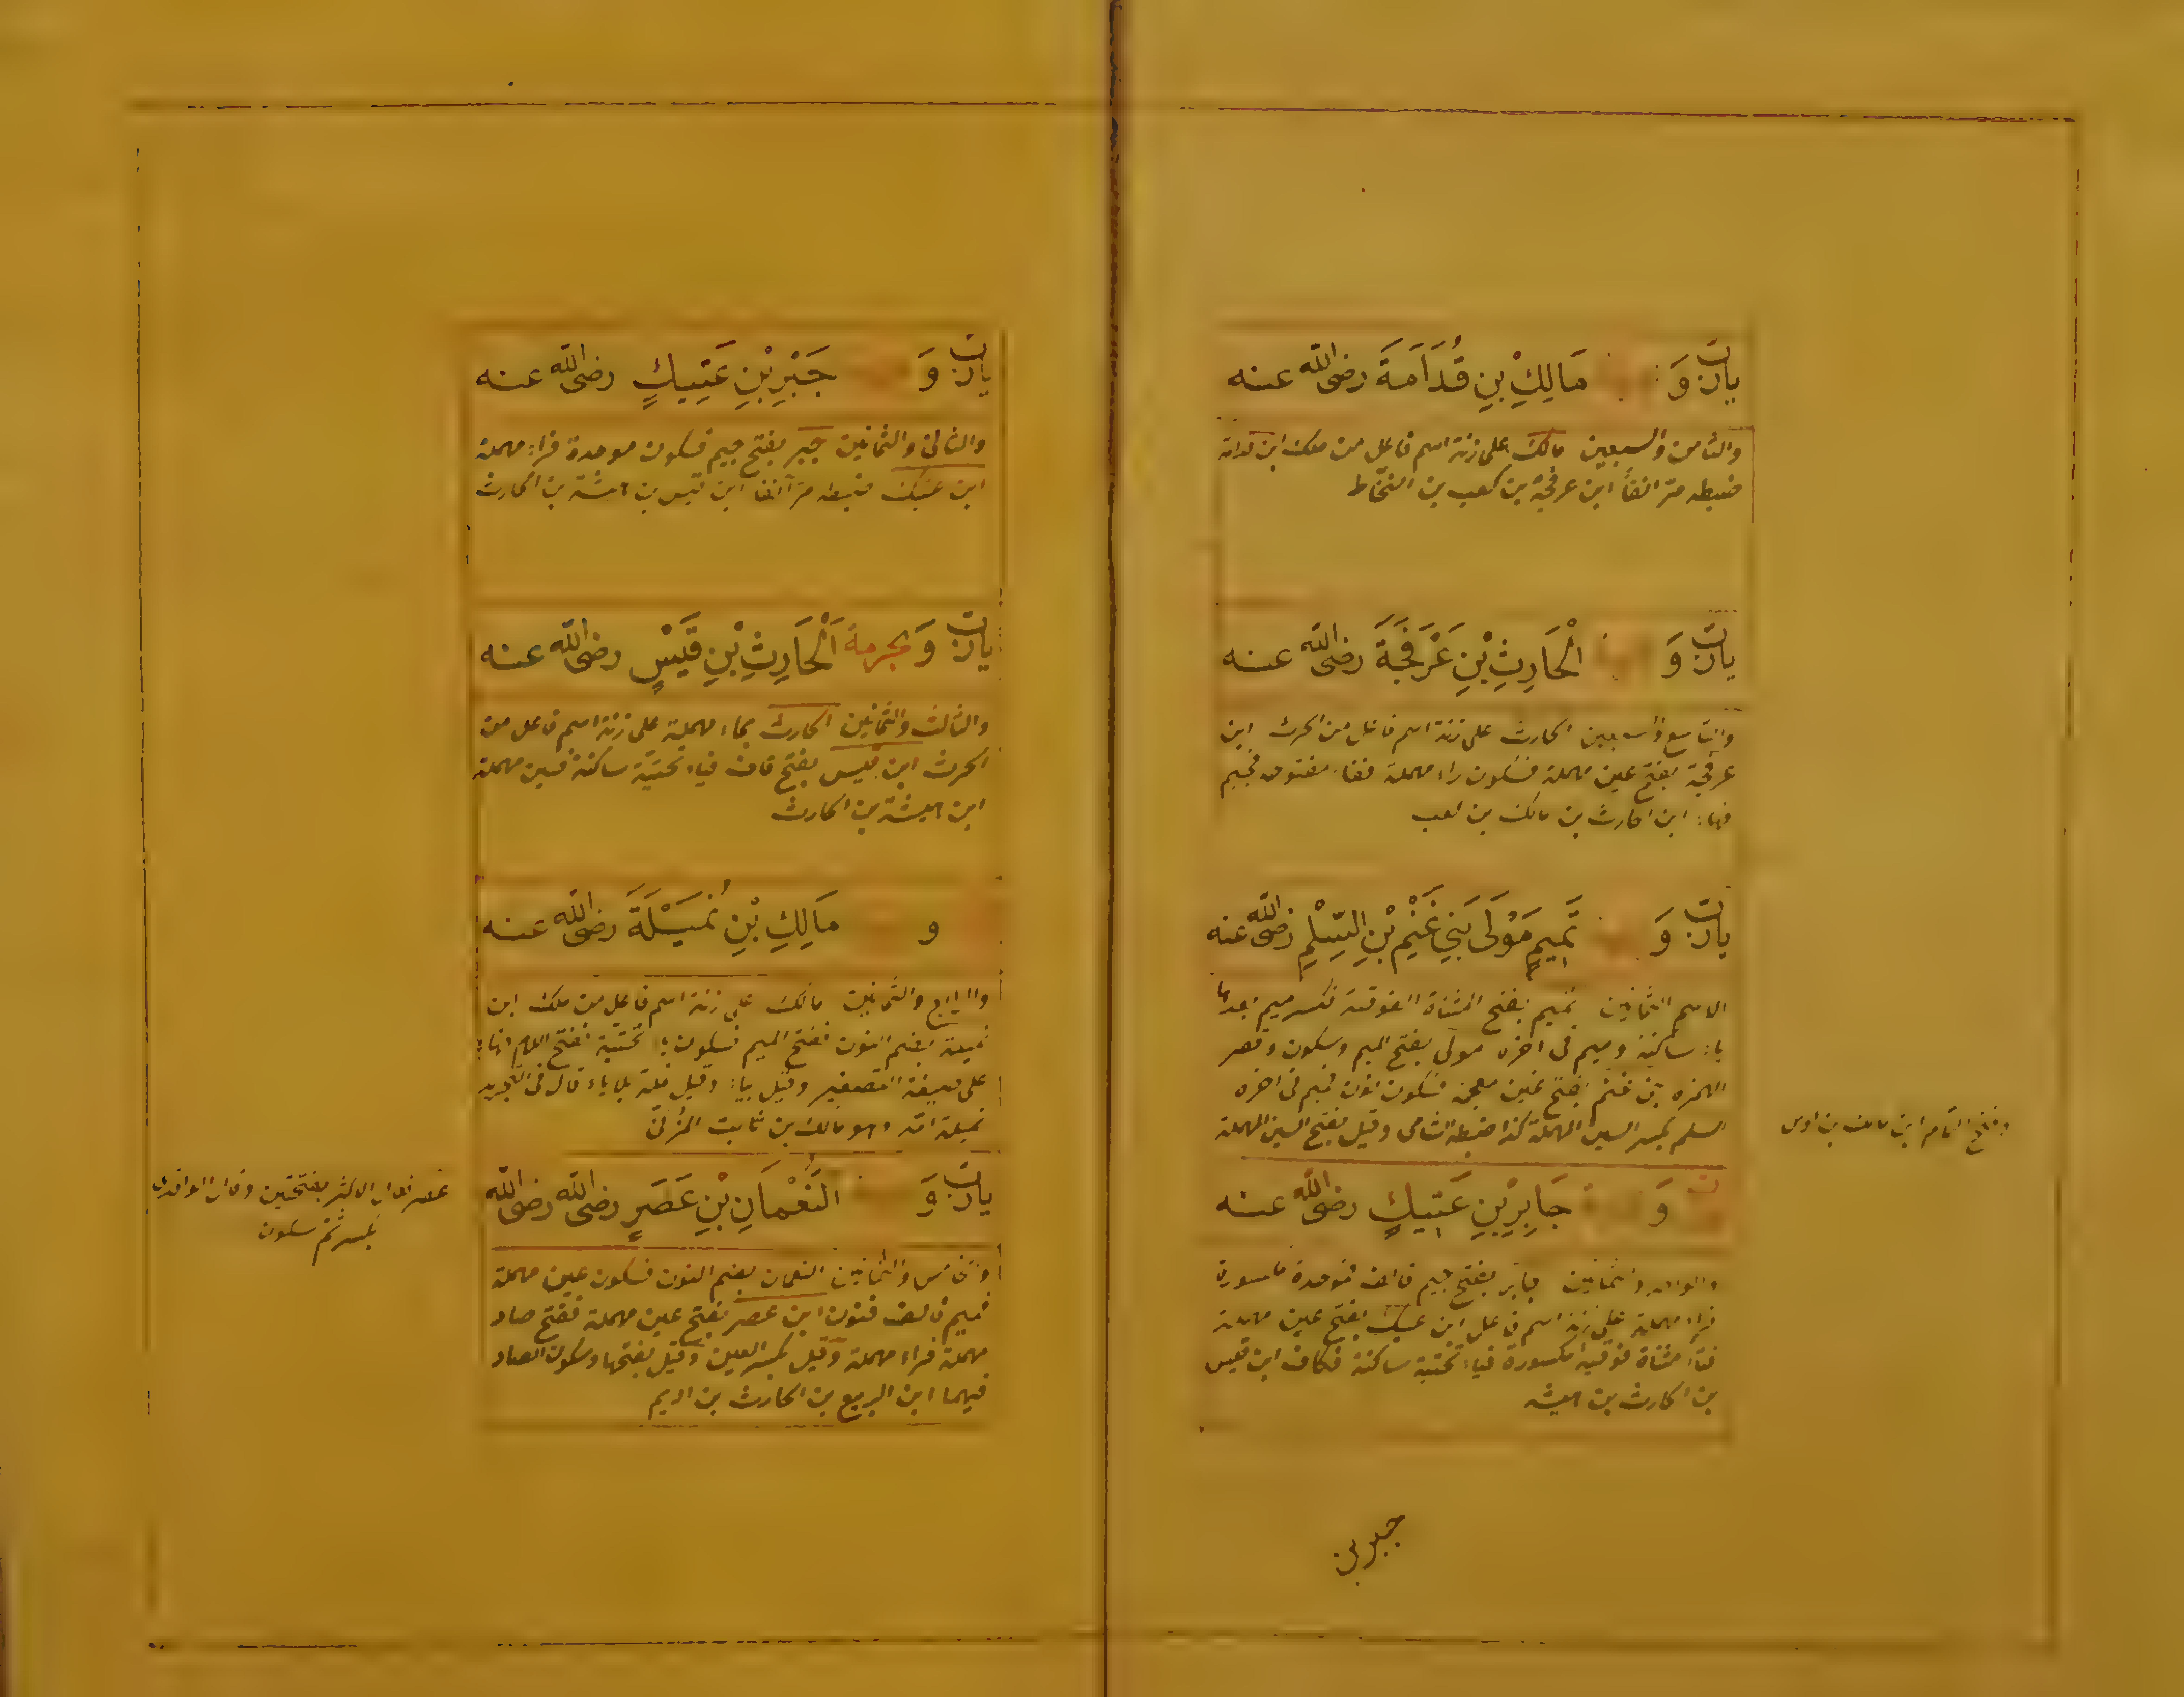 يا رب و مَالِكِ بْنِ قُدَامَةَ رضى الله عنه
والثامن والسبعين مالك على زنة اسم فاعل من ملك ابن قدامة
ضبطه مرّ انفاً ابن عرفجة بن كعب بن النحّاط
يا رب وَ الْحَارِثِ بْنِ عَرْفَجَةَ رضى الله عنه
والتاسع والسبعين الحارث على زنة اسم فاعل من الحرث ابن
عرفجة بفتح عين مهملة فسكون راء مهملة ففاء مفتوحة فجيم
فهاء ابن الحارث بن مالك بن كعب
يا رب وَ تَمِيمٍ مَوْلَى بَنِي غَنْمِ بْنِ السِّلْمِ رضى الله عنه
الاسم الثمانين تميم بفتح المثناة الفوقية فكسر ميم بعدها
ياء ساكنة وميم فى اخره مولى بفتح الميم وسكون وقصر
الهمزه بن غنم بفتح غين معجمة فسكون نون فميم فى اخره
السلم بكسر السين المهملة كذا ضبطه الشامى وقيل بفتح السين المهملة
ابن مالك بن اوس
وَ جَابِرِ بْنِ عَتِيكٍ رضى الله عنه
والواحد والثمانين جابر بفتح جيم فالف فموحدة مكسورة
فراء مهملة على زنة اسم فاعل ابن عتيك بفتح عين مهملة
فتاء مثناة فوقية مكسورة فياء تحتية ساكنة فكاف ابن قيس
بن الحارث بن هيشه
جبر بن
يا رب وَ جَبْرِ بْنِ عَتِيكٍ رضى الله عنه
والثانى والثمانين جبر بفتح جيم فسكون موحدة فراء مهملة
ابن عتيك ضبطه مرّ آنفا ابن قيس بن هيشة بن الحارث
يا رب وَ بحرمة اَلْحَارِثِ بْنِ قَيْسٍ رضى الله عنه
والثالث والثمانين الحارث بحاء مهملة على زنة اسم فاعل من
الحرث ابن قيس بفتح قاف فياء تحتية ساكنة فسين مهملة
ابن هيشة بن الحارث
و مَالِكِ بْنِ نُمَيْلَةَ رضى الله عنه
والرابع والثمانين مالك على زنة اسم فاعل من ملك ابن
نميلة بضم النون ففتح الميم فسكون ياء تحتية ففتح اللام فهاء
على صيغة التصغير وقيل بياء وقيل نملة بلا ياء قال فى
نميلة امه وهو مالك بن ثابت المزنى
يا رب وَ النُّعْمَانِ بْنِ عَصَرٍ رضى الله رضى الله
والخامس والثمانين النعمان بضم النون فسكون عين مهملة
فميم فالف فنون ابن عصر بفتح عين مهملة ففتح صاد
مهملة فراء مهملة وقيل بكسر العين وقيل بفتحها وسكون الصاد
فيهما ابن الربيع بن الحارث بن اديم
عصر الاكثر بفتحتين وقال الواقدى
بكسر ثم سكون